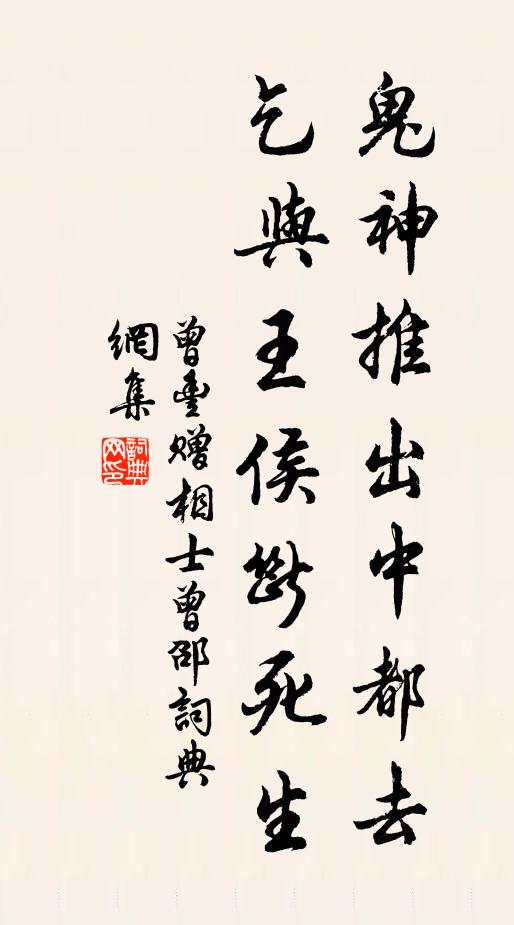 鬼神推出中都去
乞與王侯斷死生
曾豐贈相士曾邵詞典
網集
詞典
网印